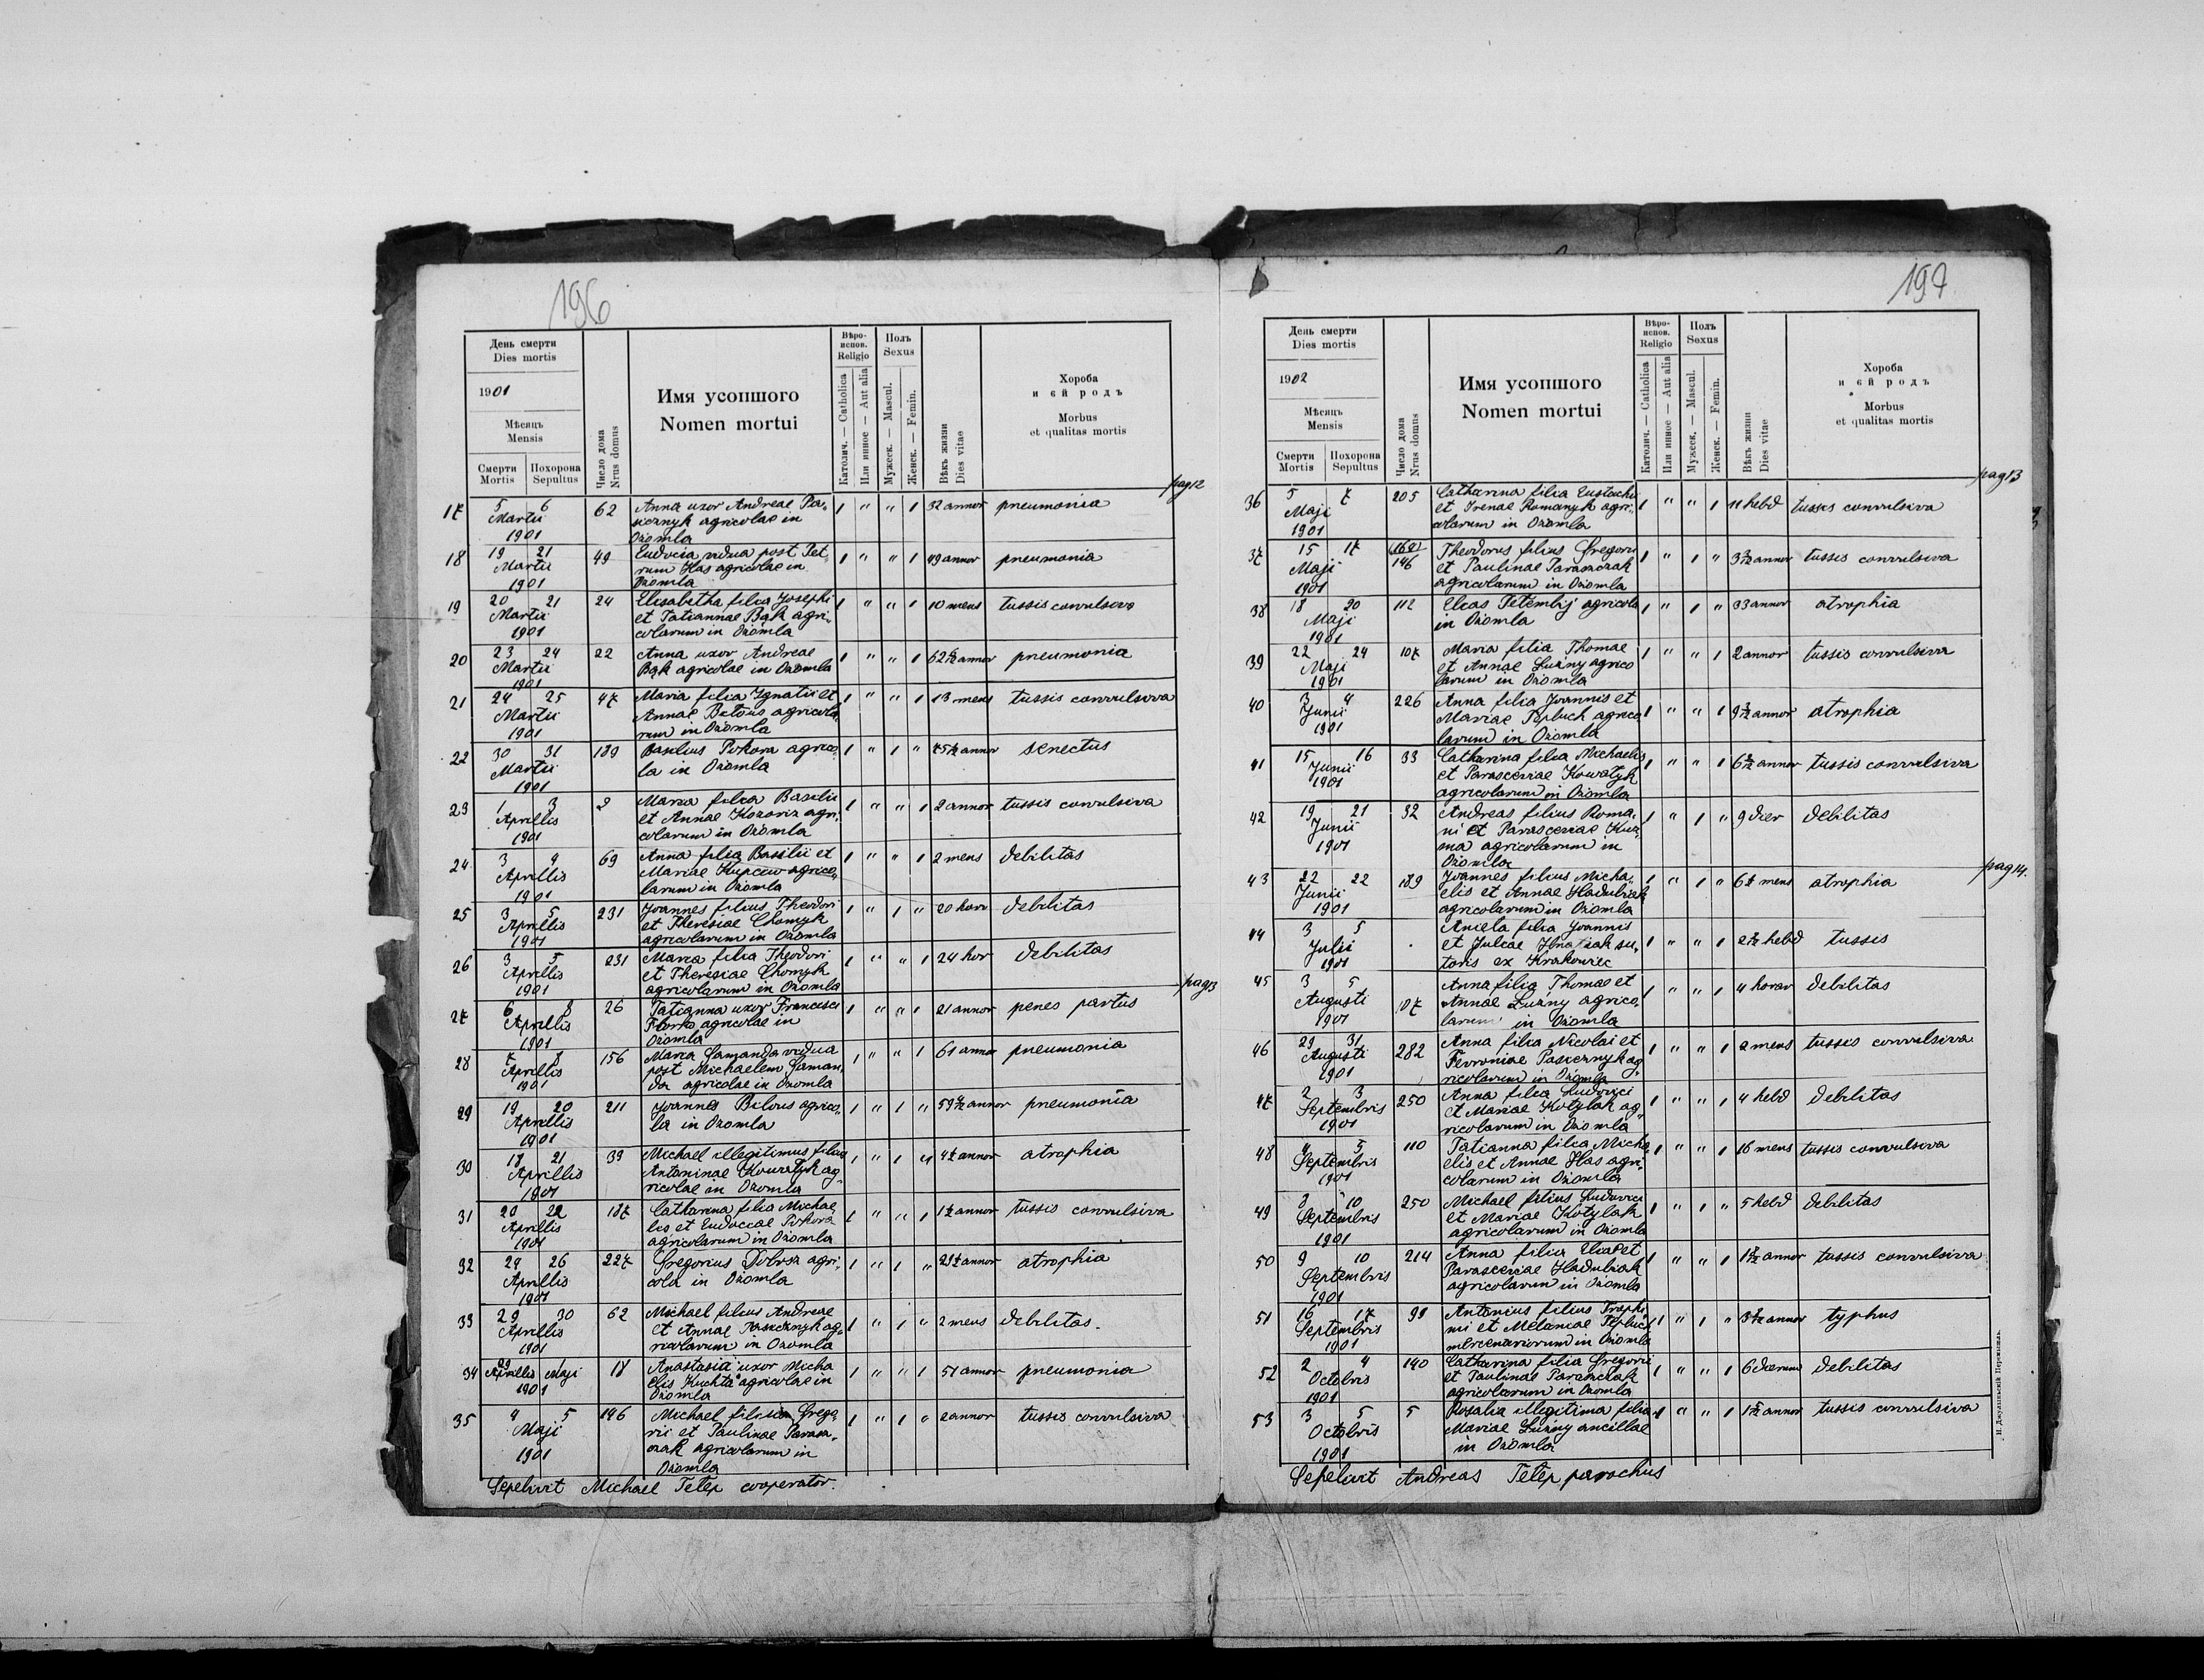 196
День смерти
Dies mortis
1901
Мѣсяць
Mensis
Смерти
Mortis
Похорона
Sepultus
Число дома
Nrus domus
Имя усопшого
Nomen mortui
Вѣро-
испов.
Religio
Католич. — Catholica
Или инное — Aut alia
Полъ
Sexus
Мужеск. — Mascul.
Женск. — Femin.
Вѣкъ жизни
Dies vitae
Хороба
и єй родъ
Morbus
et qualitas mortis
pag12
17 5 6 Martii 1901 62 Anna uxor Andreae Pa„ 1 " " 1 32 annor pneumonia
sicznyk agricolae in
Ożomla
18 19 21 Martii 1901 49 Eudocia vidua post Pet„ 1 " " 1 49 annor pneumonia
rum Has agricolae in
Ożomla
19 20 21 Martii 1901 24 Elisabetha filia Josephi 1 " " 1 10 mens tussis convulsiva
et Tatiannae Bąk agri„
colarum in Ożomla
20 23 24 Martii 1901 22 Anna uxor Andreae 1 " " 1 annor pneumonia
Bąk agricolae in Ożomla
21 24 25 Martii 1901 47 Maria filia Ignatii et 1 " " 1 13 mens tussis convulsiva
Annae Biłous agricola„
rum in Ożomla
22 30 31 Martii 1901 189 Basilius Pokora agrico„ 1 " 1 " annor senectus
la in Ożomla
23 1 3 Aprillis 1901 Maria filia Basilii 1 " " 1 2 annor tussis convulsiva
et Annae Kozoriz agri„
colarum in Ożomla
24 3 4 Aprillis 1901 69 Anna filia Basilii et 1 " " 1 2 mens debilitas
Mariae Kupciw agrico„
larum in Ożomla
25 3 5 Aprillis 1901 231 Joannes filius Theodori 1 " 1 " 20 horr debilitas
et Theresiae Chomyk
agricolarum in Ożomla
26 3 5 Aprillis 1901 231 Maria filia Theodori 1 " " 1 24 hor debilitas
et Theresiae Chomyk
agricolarum in Ożomla
pag13
27 6 8 Aprillis 1901 26 Tatianna uxor Francisci 1 " " 1 21 annor penes partus
agricolae in
Ożomla
28 7 8 Aprillis 1901 156 Maria Samanda vidua 1 " " 1 61 annor pneumonia
post Michaelem Saman„
da agricolae in Ożomla
29 19 20 Aprillis 1901 211 Joannes Biłous agrico„ 1 " 1 " annor pneumonia
la in Ożomla
30 18 21 Aprillis 1901 39 Michael illegitimus filius 1 " 1 " annor atrophia
Antoninae Kowałyk ag„
ricolae in Ożomla
31 20 22 Aprillis 1901 187 Catharina filia Michae 1 " " 1 1½ annor tussis convulsiva
lis et Eudociae Pokora
agricolarum in Ożomla
32 24 26 Aprillis 1901 227 Gregorius agri„ 1 " 1 " annor atrophia
cola in Ożomla
33 29 30 Aprillis 1901 62 Michael filius Andreae 1 " 1 " 2 mens debilitas.
et Annae Pasicznyk ag„
ricolarum in Ożomla
34 29 Aprillis 1 Maji 1901 18 Anastasia uxor Micha 1 " " 1 51 annor pneumonia
elis Kuchta agricolae in
Ożomla
35 4 5 Maji 1901 146 Michael filius Grego„ 1 " 1 " 2 annor tussis convulsiva
rii et Paulinae Parasz„
czak agricolarum in
Ożomla
Sepelivit Michael Telep cooperator.
197
День смерти
Dies mortis
1902
Мѣсяць
Mensis
Смерти
Mortis
Похорона
Sepultus
Число дома
Nrus domus
Имя усопшого
Nomen mortui
Вѣро-
испов.
Religio
Католич. — Catholica
Или инное — Aut alia
Полъ
Sexus
Мужеск. — Mascul.
Женск. — Femin.
Вѣкъ жизни
Dies vitae
Хороба
и єй родъ
Morbus
et qualitas mortis
pag13
36 5 7 Maji 1901 205 Catharina filia Eustachii 1 " " 1 11 hebd tussis convulsiva
et Irenae Romanyk agri„
colarum in Ożomla
37 15 17 Maji 1901 146 Theodorus filius Gregorii 1 " 1 " annor tussis convulsiva
et Paulinae Paraszczak
agricolarum in Ożomla
38 18 20 Maji 1901 112 Elias agricola 1 " 1 " 33 annor atrophia
in Ożomla
39 22 24 Maji 1901 107 Maria filia Thomae 1 " " 1 2 annor tussis convulsiva
et Annae Łużny agrico
larum in Ożomla
40 3 4 Junii 1901 226 Anna filia Joannis et 1 " " 1 annor atrophia
Mariae Pepluch agrico
larum in Ożomla
41 15 16 Junii 1901 33 Catharina filia Michaelis 1 " " 1 annor tussis convulsiva
et Parasceviae Kowałyk
agricolarum in Ożomla
42 19 21 Junii 1901 32 Andreas filius Roma„ 1 " 1 " 9 dier debilitas
ni et Parasceviae Kuź„
ma agricolarum in
Ożomla
pag14.
43 22 22 Junii 1901 189 Joannes filius Micha„ 1 " 1 " 6½ mens atrophia
elis et Annae Hadubiak
agricolarum in Ożomla
44 3 5 Julii 1901 Aniela filia Joannis 1 " " 1 hebd tussis
et Juliae Hnatiak su„
toris ex Krakowiec
45 3 5 Augusti 1901 107 Anna filia Thomae et 1 " " 1 4 horar debilitas
Annae Łużny agrico„
larum in Ożomla
46 29 31 Augusti 1901 282 Anna filia Nicolai et 1 " " 1 2 mens tussis convulsiva
Fevroniae Pasicznyk ag„
ricolarum in Ożomla
47 2 3 Septembris 1901 250 Anna filia Ludovici 1 " " 1 4 hebd debilitas
et Mariae Kotylak ag„
ricolarum in Ożomla
48 4 5 Septembris 1901 110 Tatianna filia Micha„ 1 " " 1 16 mens tussis convulsiva
elis et Annae Has agri„
colarum in Ożomla
49 10 Septembris 1901 250 Michael filius Ludovici 1 " 1 " 5 hebd debilitas
et Mariae Kotylak
agricolarum in Ożomla
50 9 10 Septembris 1901 214 Anna filia Eliae et 1 " " 1 annor tussis convulsiva
Parasceviae Hadubiak
agricolarum in Ożomla
51 16 17 Septembris 1901 Antonius filius Trophi 1 " 1 " annor typhus
mi et Melaniae
mercenariorum in Ożomla
52 2 4 Octobris 1901 140 Catharina filia Gregorii 1 " " 1 6 dierum debilitas
et Paulinae Paraszczak
agricolarum in Ożomla
53 3 5 Octobris 1901 5 Rosalia illegitima filia 1 " " 1 annor tussis convulsiva
Mariae Łużny ancillae
in Ożomla
Sepelivit Andreas Telep parochus
И. Джулынскій Перемышль.